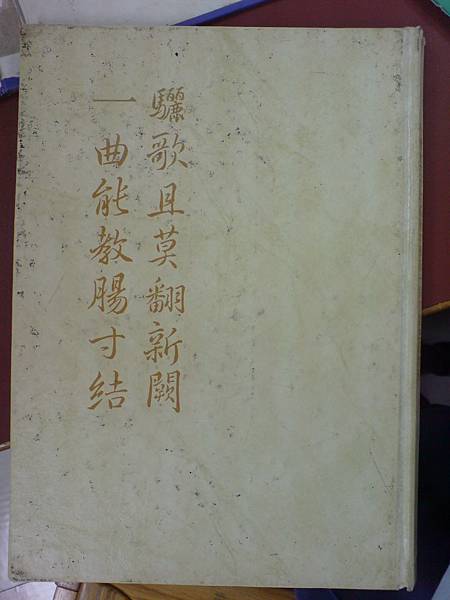 驪歌且莫翻新闕
一曲能教腸寸結